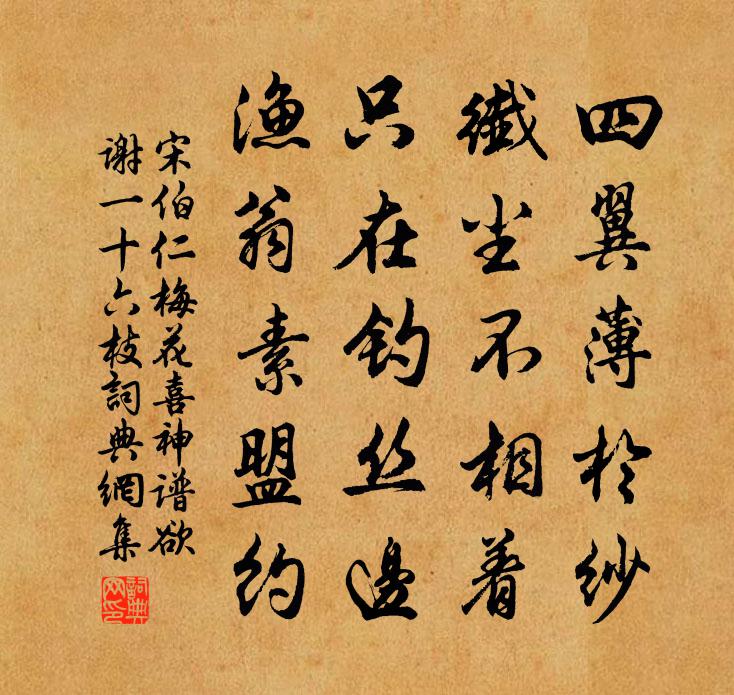 四翼薄於纱
纎尘不相着
只在钓丝邊
渔翁素盟约
宋伯仁梅花喜神谱欲
谢一十六枝詞典網集
詞典网印